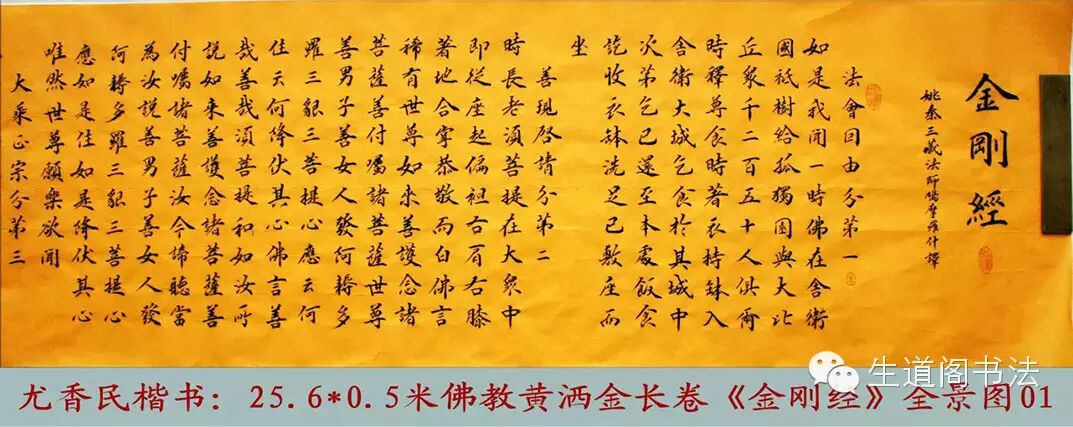 金剛經
姚秦三藏法師鳩摩羅什譯
法會因由分第一
如是我聞一時佛在舍衛
國祇樹給孤獨園與大比
丘眾千二百五十人俱爾
時釋尊食時著衣持鉢入
舍衛大城乞食於其城中
次第乞已還至本處飯食
訖收衣鉢洗足已敷座而
坐
善現啟請分第二
時長老須菩提在大眾中
即從座起偏袒右肩右膝
著地合掌恭敬而白佛言
稀有世尊如來善護念諸
菩薩善付囑諸菩薩世尊
善男子善女人發阿耨多
羅三藐三菩提心應云何
住云何降伏其心佛言善
哉善哉須菩提和如汝所
說如來善護念諸菩薩善
付囑諸菩薩汝今諦聽當
為汝說善男子善女人發
阿耨多羅三藐三菩提心
應如是住如是降伏其心
唯然世尊願樂欲聞
大乘正宗分第三
生道阁书法
尤香民楷书：25.6*0.5米佛教黄洒金长卷《金刚经》全景图01